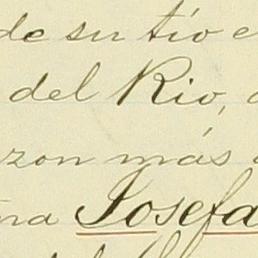 de su tío
del Rio,
zon más
na Josefa